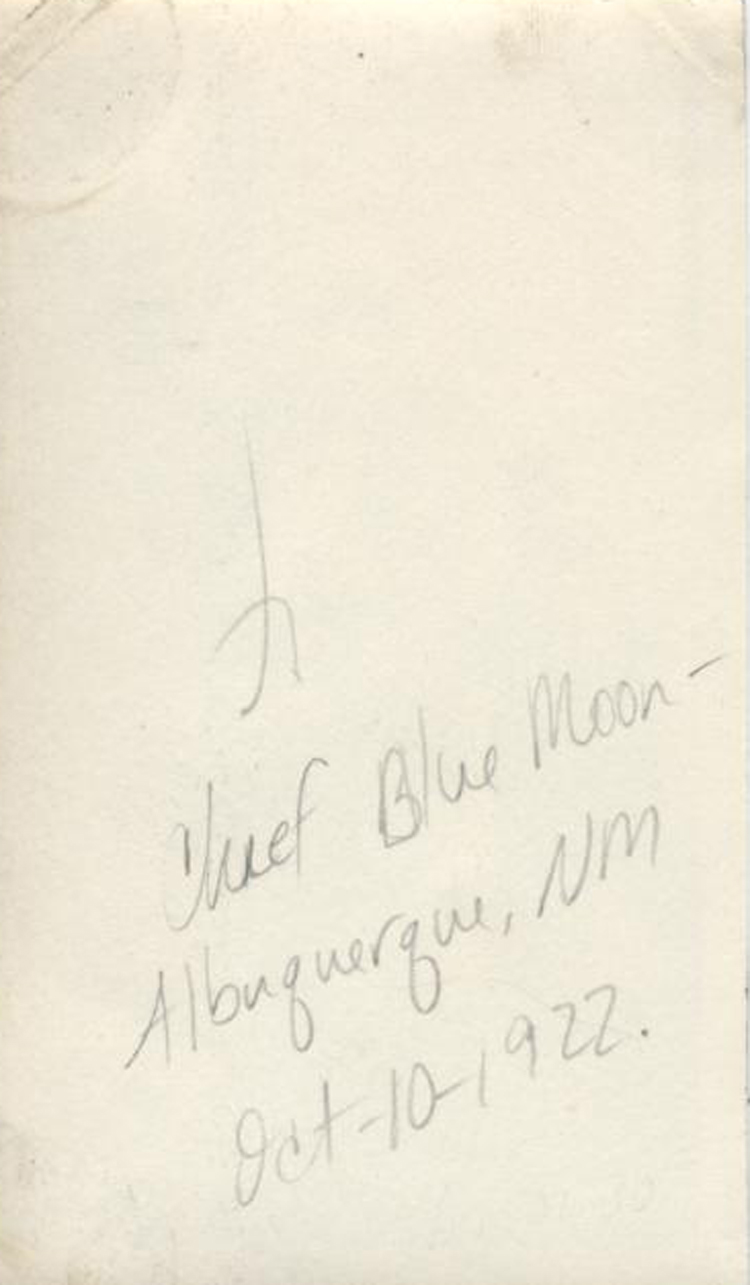 Chief Blue Moon-
Albuquerque, NM
Oct-10-1922.